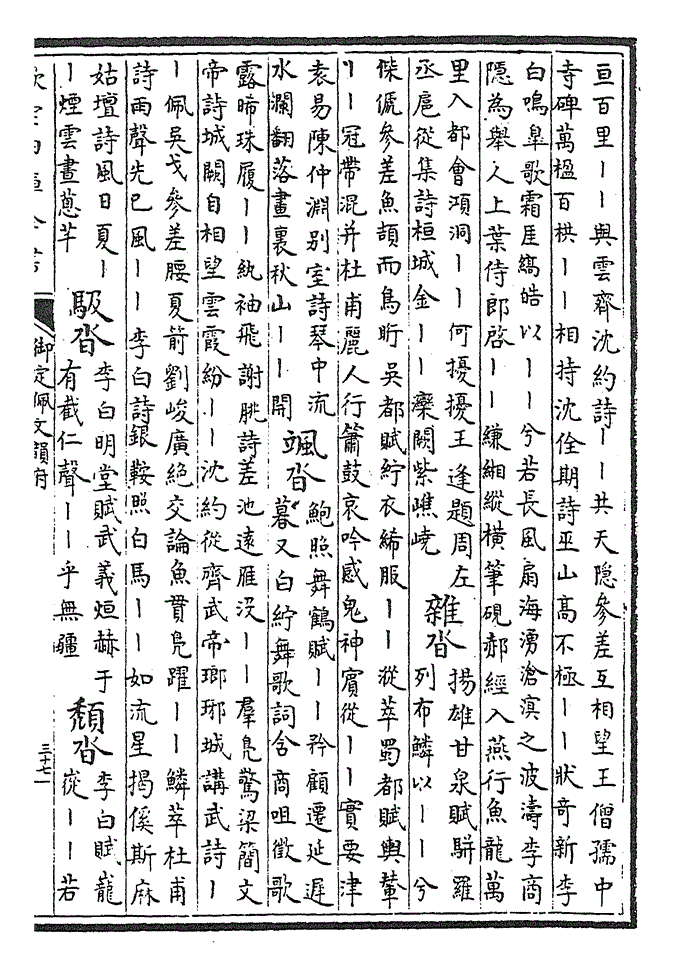 亘百里丨丨與雲齊沈約詩丨丨共天隱參差互相望王僧孺中
寺碑萬楹百栱丨丨相持沈佺期詩巫山高不極丨丨狀奇新李
白鳴皐歌霜厓縞皓以丨丨兮若長風扇海湧滄溟之波濤李商
隱為舉人上葉侍郎啓丨丨縑緗縱橫筆硯郝經入燕行魚龍萬
里入都會澒洞丨丨何擾擾王逢題周左
丞扈從集詩桓城金丨丨欒闕紫嶕嶢
雜沓
揚雄甘泉賦駢羅
列布鱗以丨丨兮
傑俿參差魚頡而鳥䀪吳都賦紵衣絺服丨丨漎萃蜀都賦輿輦
丨丨冠帶混并杜甫麗人行簫鼓哀吟感鬼神賓從丨丨實要津
袁易陳仲淵別室詩琴中流
水瀾翻落畫裏秋山丨丨開
颯沓
鮑照舞鶴賦丨丨矜顧遷延遲
暮又白紵舞歌詞含商咀徵歌
露晞珠履丨丨紈袖飛謝朓詩差池遠雁没丨丨羣鳧驚梁簡文
帝詩城闕自相望雲霞紛丨丨沈約從齊武帝瑯琊城講武詩丨
丨佩吳戈參差腰夏箭劉峻廣絶交論魚貫鳧躍丨丨鱗萃杜甫
詩雨聲先已風丨丨李白詩銀鞍照白馬丨丨如流星揭傒斯麻
姑壇詩風日夏丨
丨煙雲晝蔥芊
馺沓
李白明堂賦武義烜赫于
有截仁聲丨丨乎無疆
頽沓
李白賦巃
嵸丨丨若
欽定四庫全書
御定佩文韻府
三十七